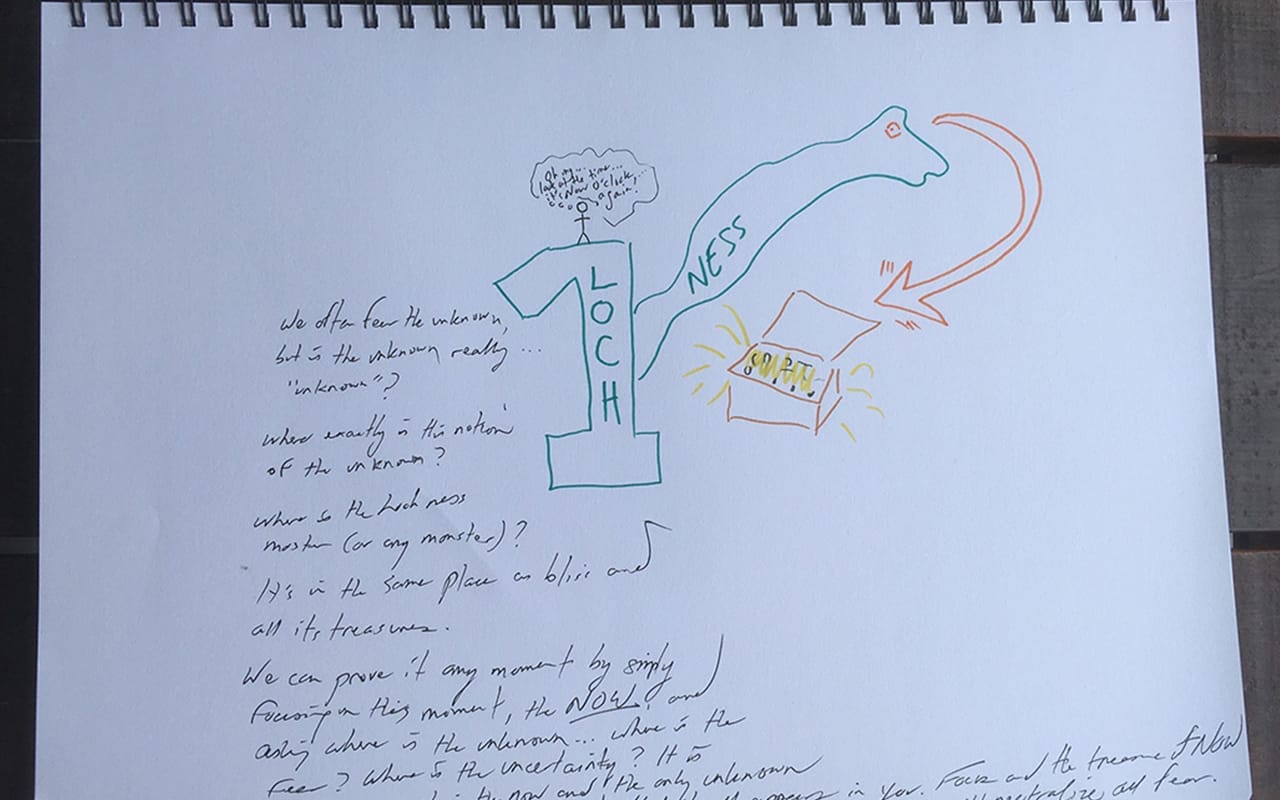 Oh my...
look at the time...
it's Now O'clock,...
again!
LOCH
NESS
We often fear the unknown,
but is the unknown really ...
"unknown"?
where exactly is this notion
of the unknown?
where is the Loch ness
(or any monster)?
It's in the same place as bliss and
all its treasures.
We can prove it any moment by simply
focusing on this moment, the NOW, and
asking where is the unknown... where is the
fear? Where is the uncertainty? It is
the now and the only unknown
in you. Focus and the treasure of Now
neutralize all fear.